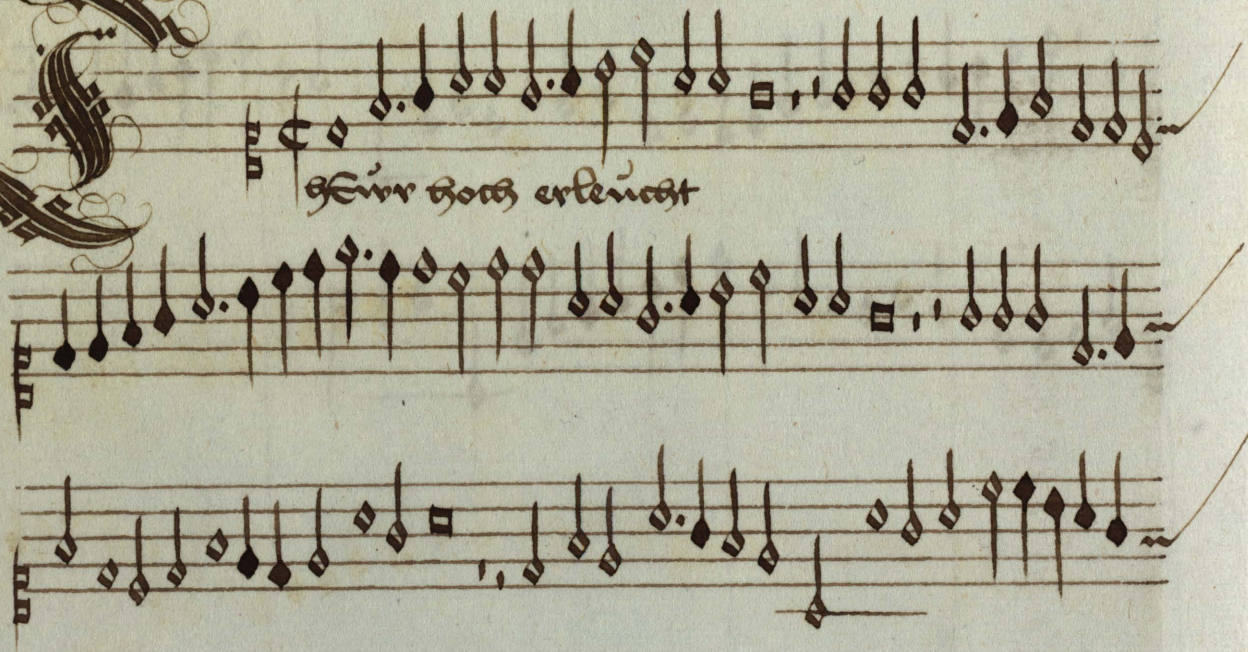 hEwr hoch erleucht